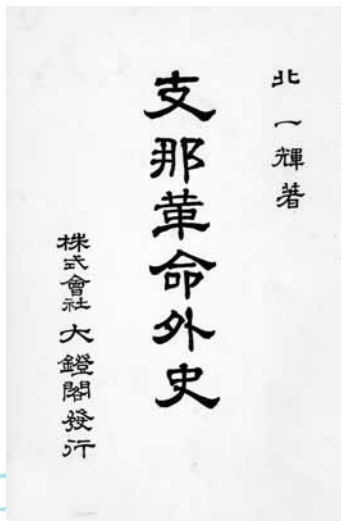 北一輝著
支那革命外史
株式會社大鐙閣發行